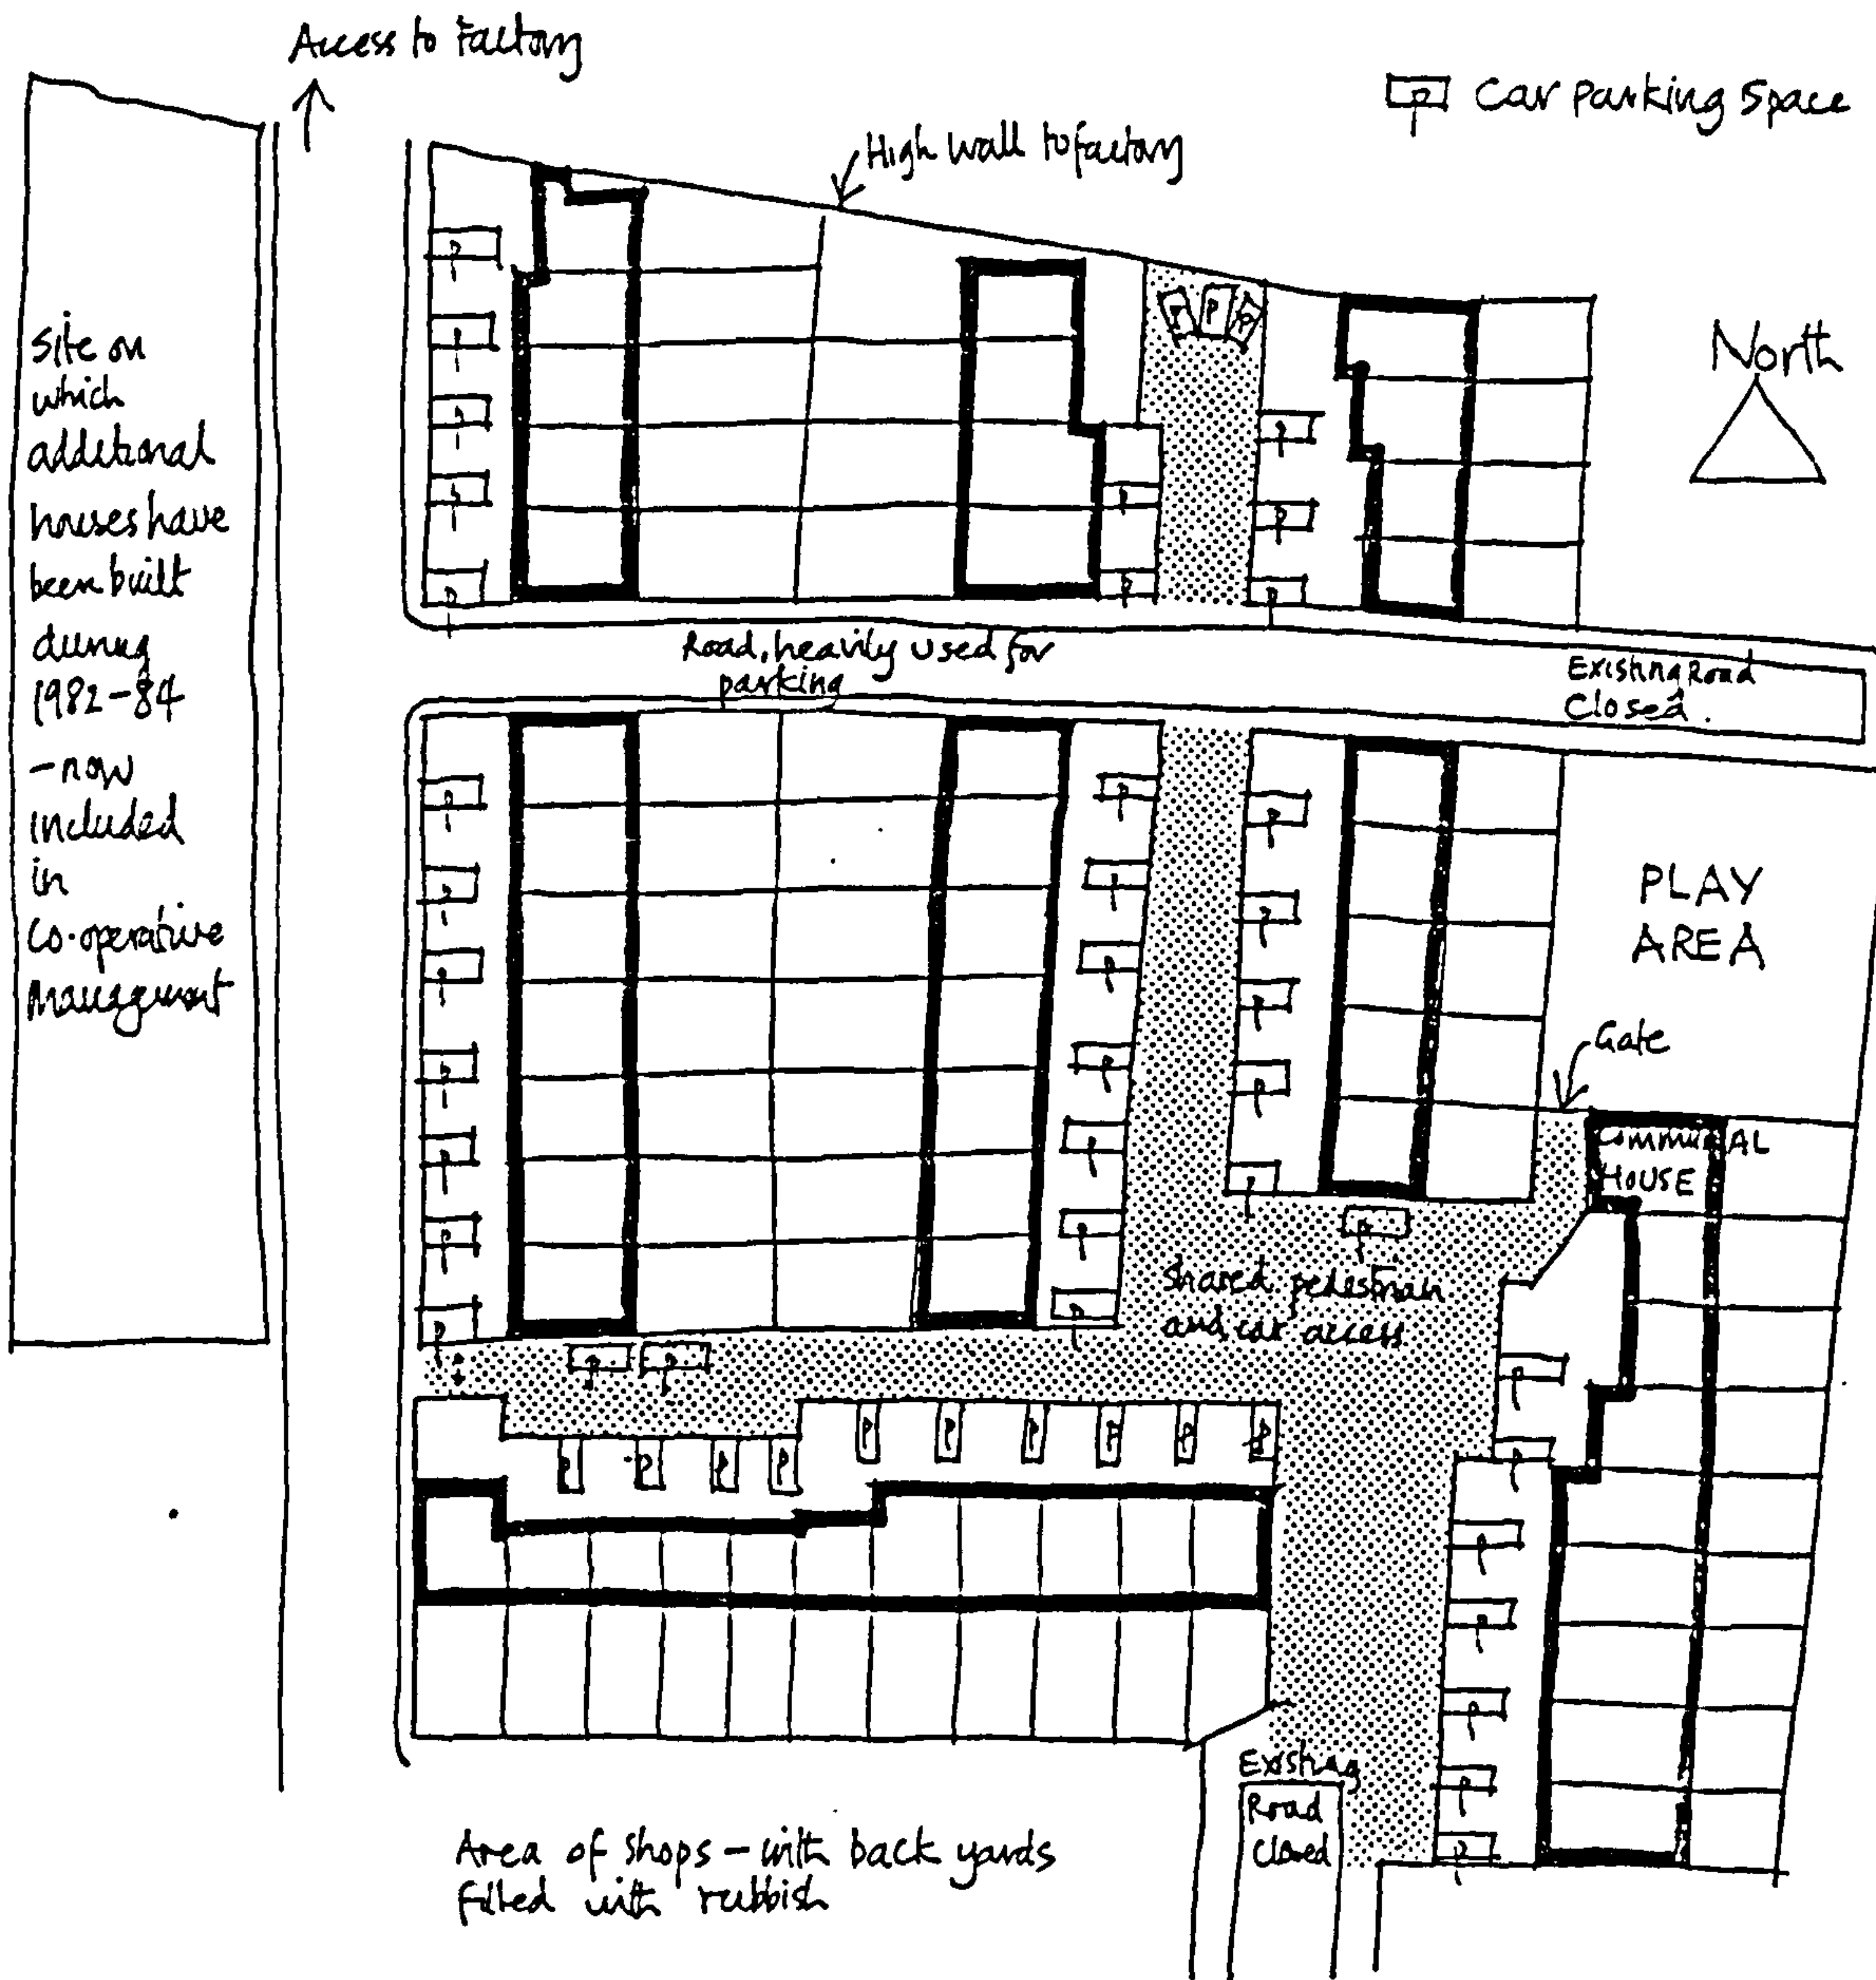 Access to Factory
P Car Parking Space
High Wall to factory
North
Site on
which
additional
houses have
been built
during
1982-84
- now
included
in
Co-operative
Management
Road, heavily used for
parking
Existing Road
Closed.
PLAY
AREA
Gate
COMMUNAL
HOUSE
Shared pedestrian
and car access
Existing
Road
Closed
Area of shops - with back yards
filled with rubbish